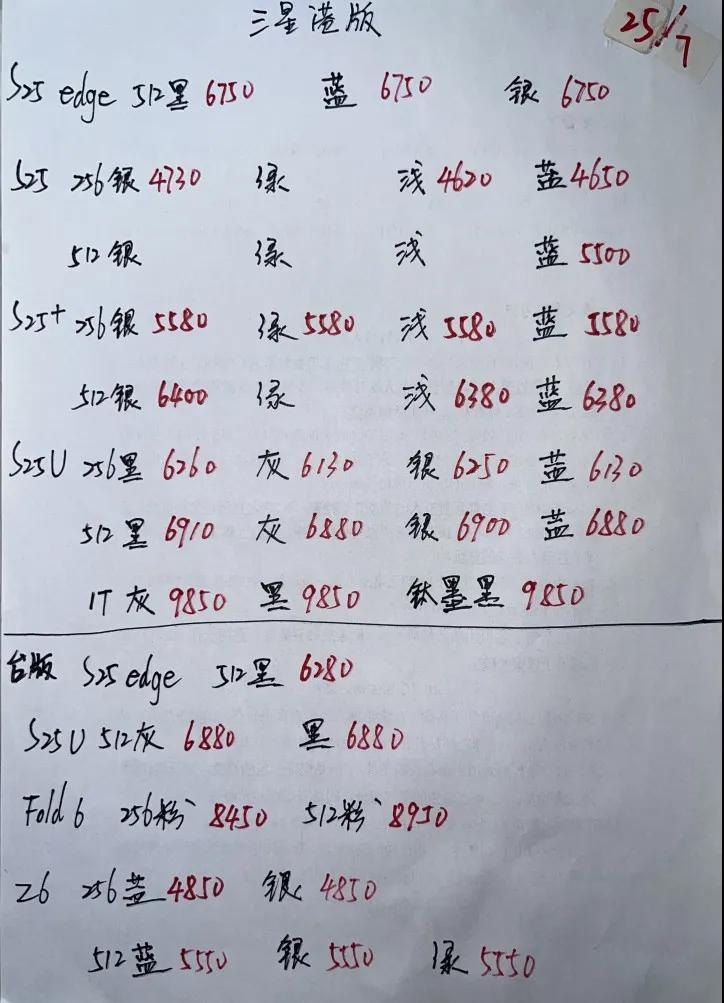 三星港版 25/7
S25 edge 512黑 6750 蓝 6750 银 6750
S25 256银 4730 绿 浅 4620 蓝 4650
512银 绿 浅 蓝 5500
S25+ 256银 5580 绿 5580 浅 5580 蓝 5580
512银 6400 绿 浅 6380 蓝 6380
S25U 256黑 6260 灰 6130 银 6250 蓝 6130
512黑 6910 灰 6880 银 6900 蓝 6880
1T 灰 9850 黑 9850 钛墨黑 9850
台版 S25 edge 512黑 6280
S25U 512灰 6880 黑 6880
Fold 6 256粉 8450 512粉 8950
Z6 256蓝 4850 银 4850
512蓝 5550 银 5550 绿 5550